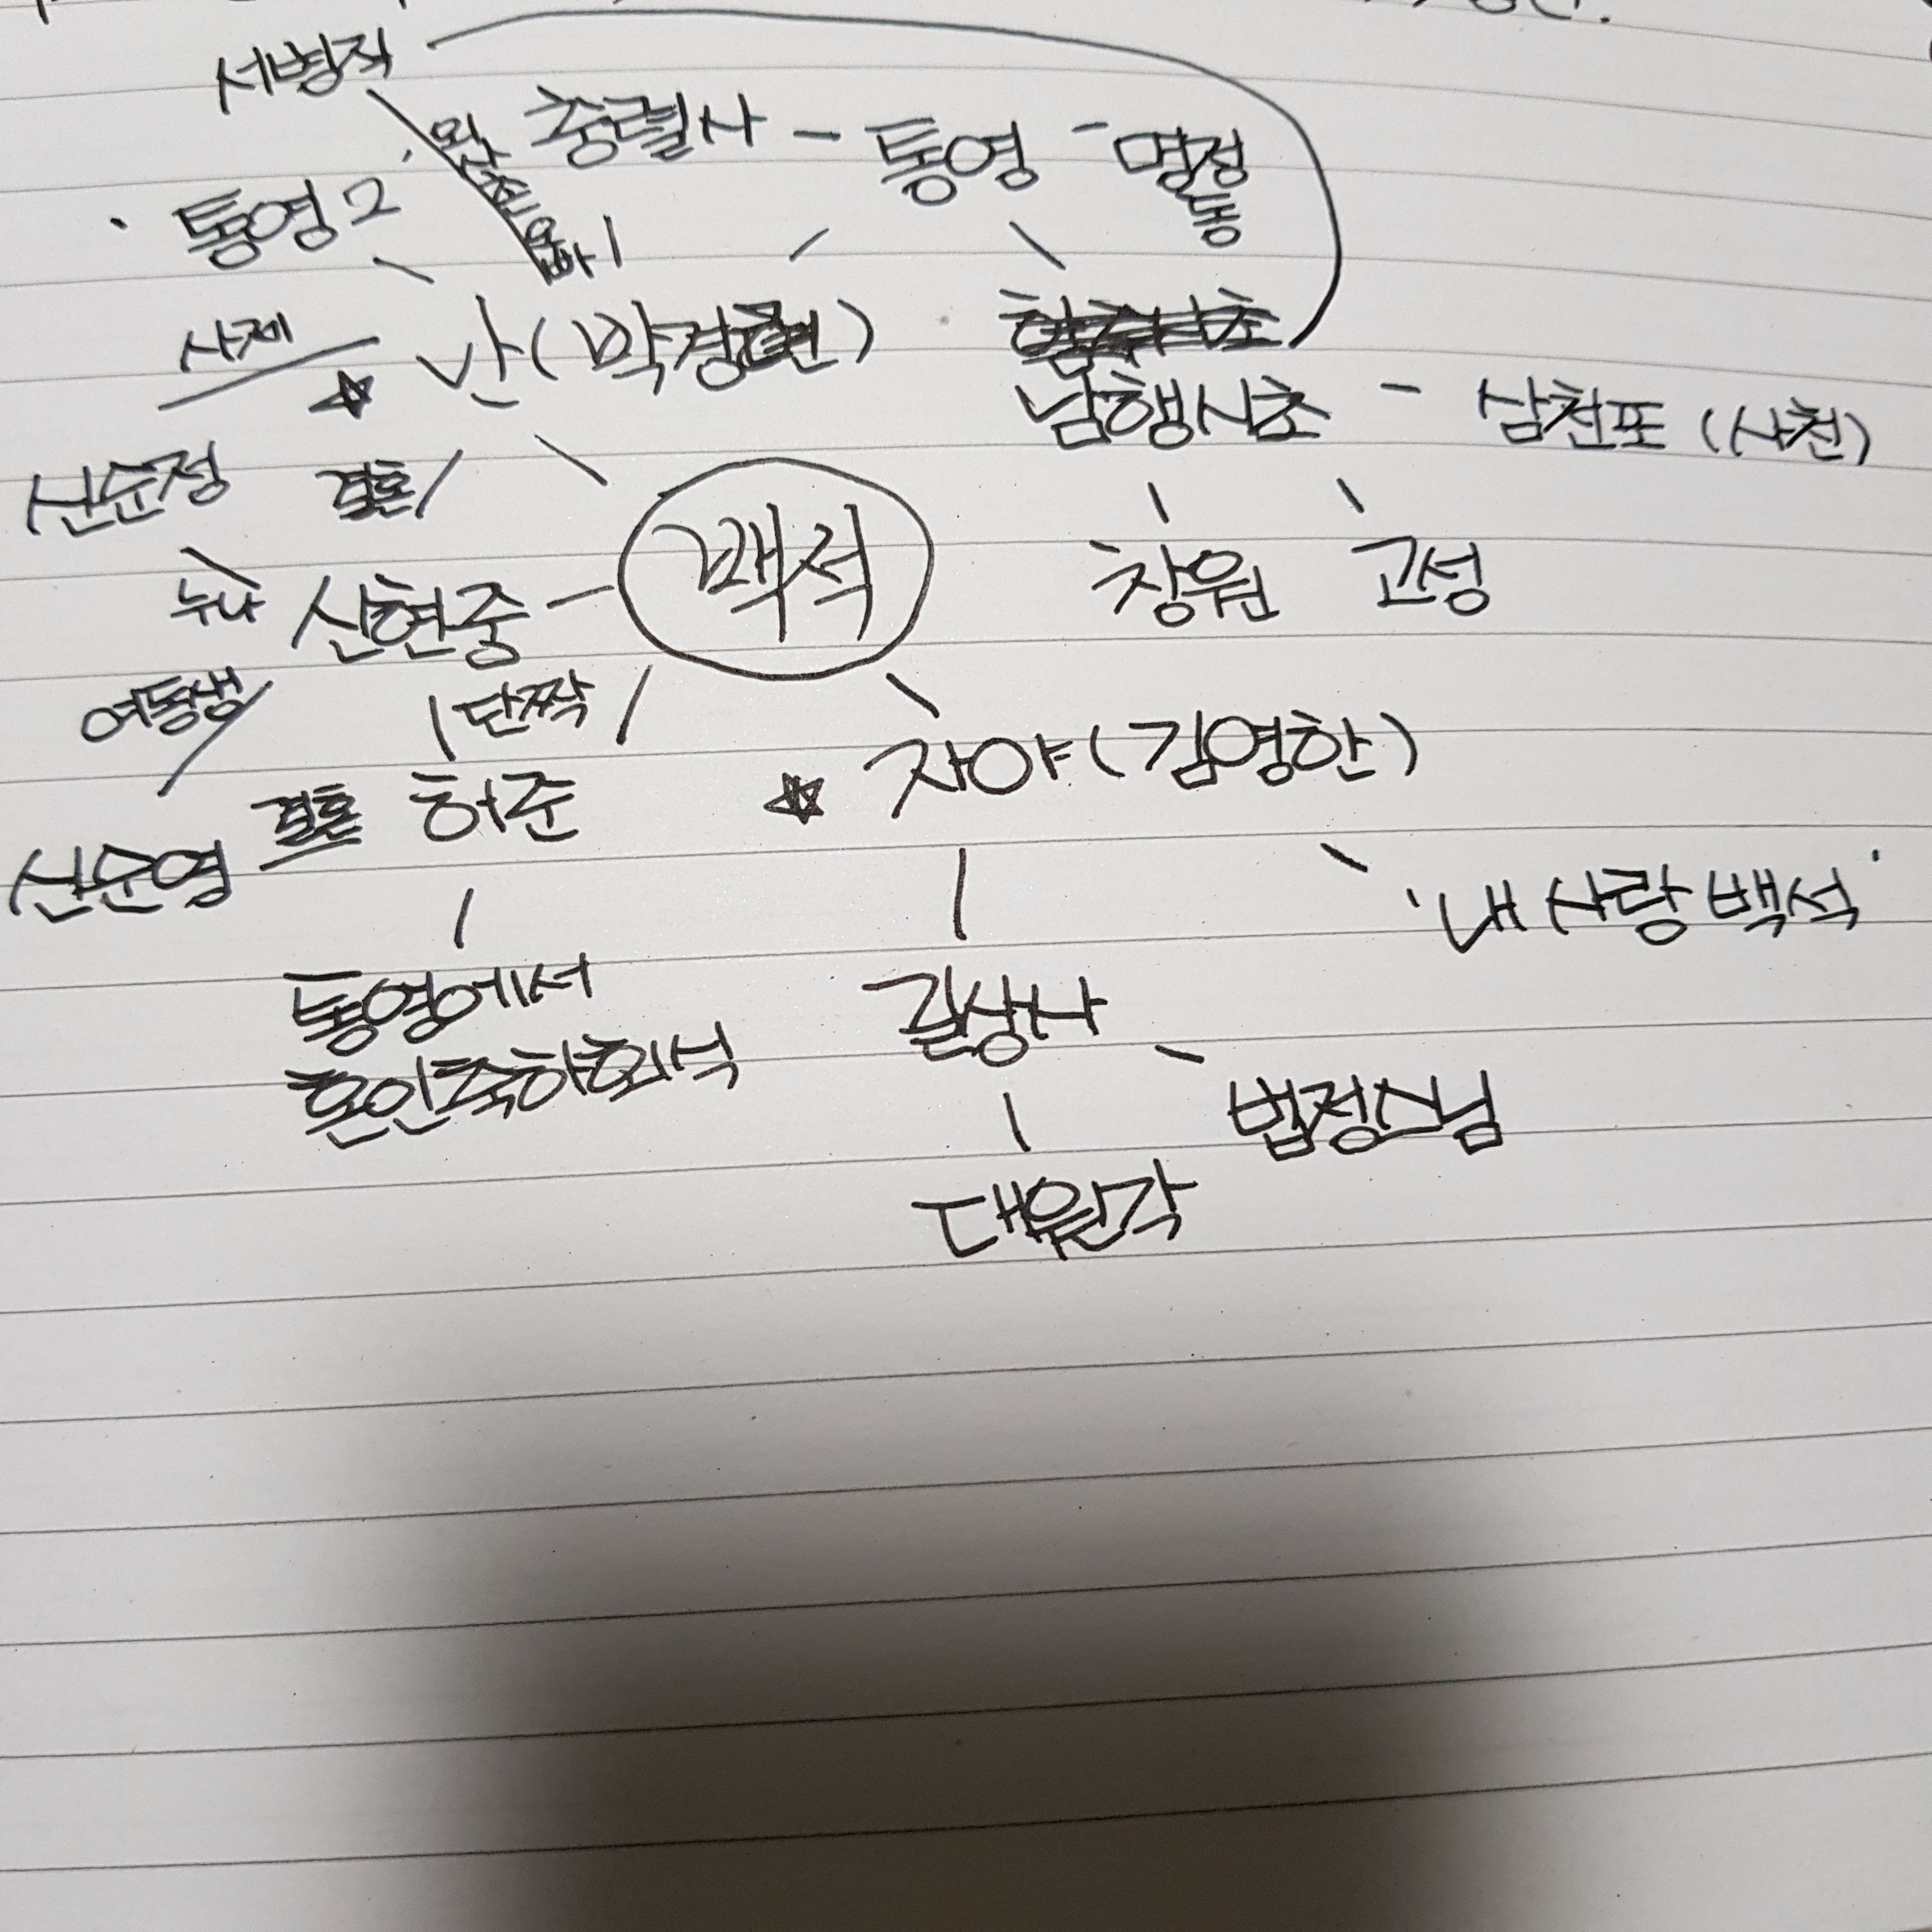 서병직
충렬사 - 통영 - 명정동
'통영2'
외사촌오빠
사제
난(박경련)
남행시초 - 삼천포 (사천)
신순정
결혼
백석
창원 고성
누나
신현중
여동생
단짝
자야(김영한)
결혼 허준
신순영
'내 사랑 백석'
통영에서
혼인축하회식
길상사
법정스님
대원각